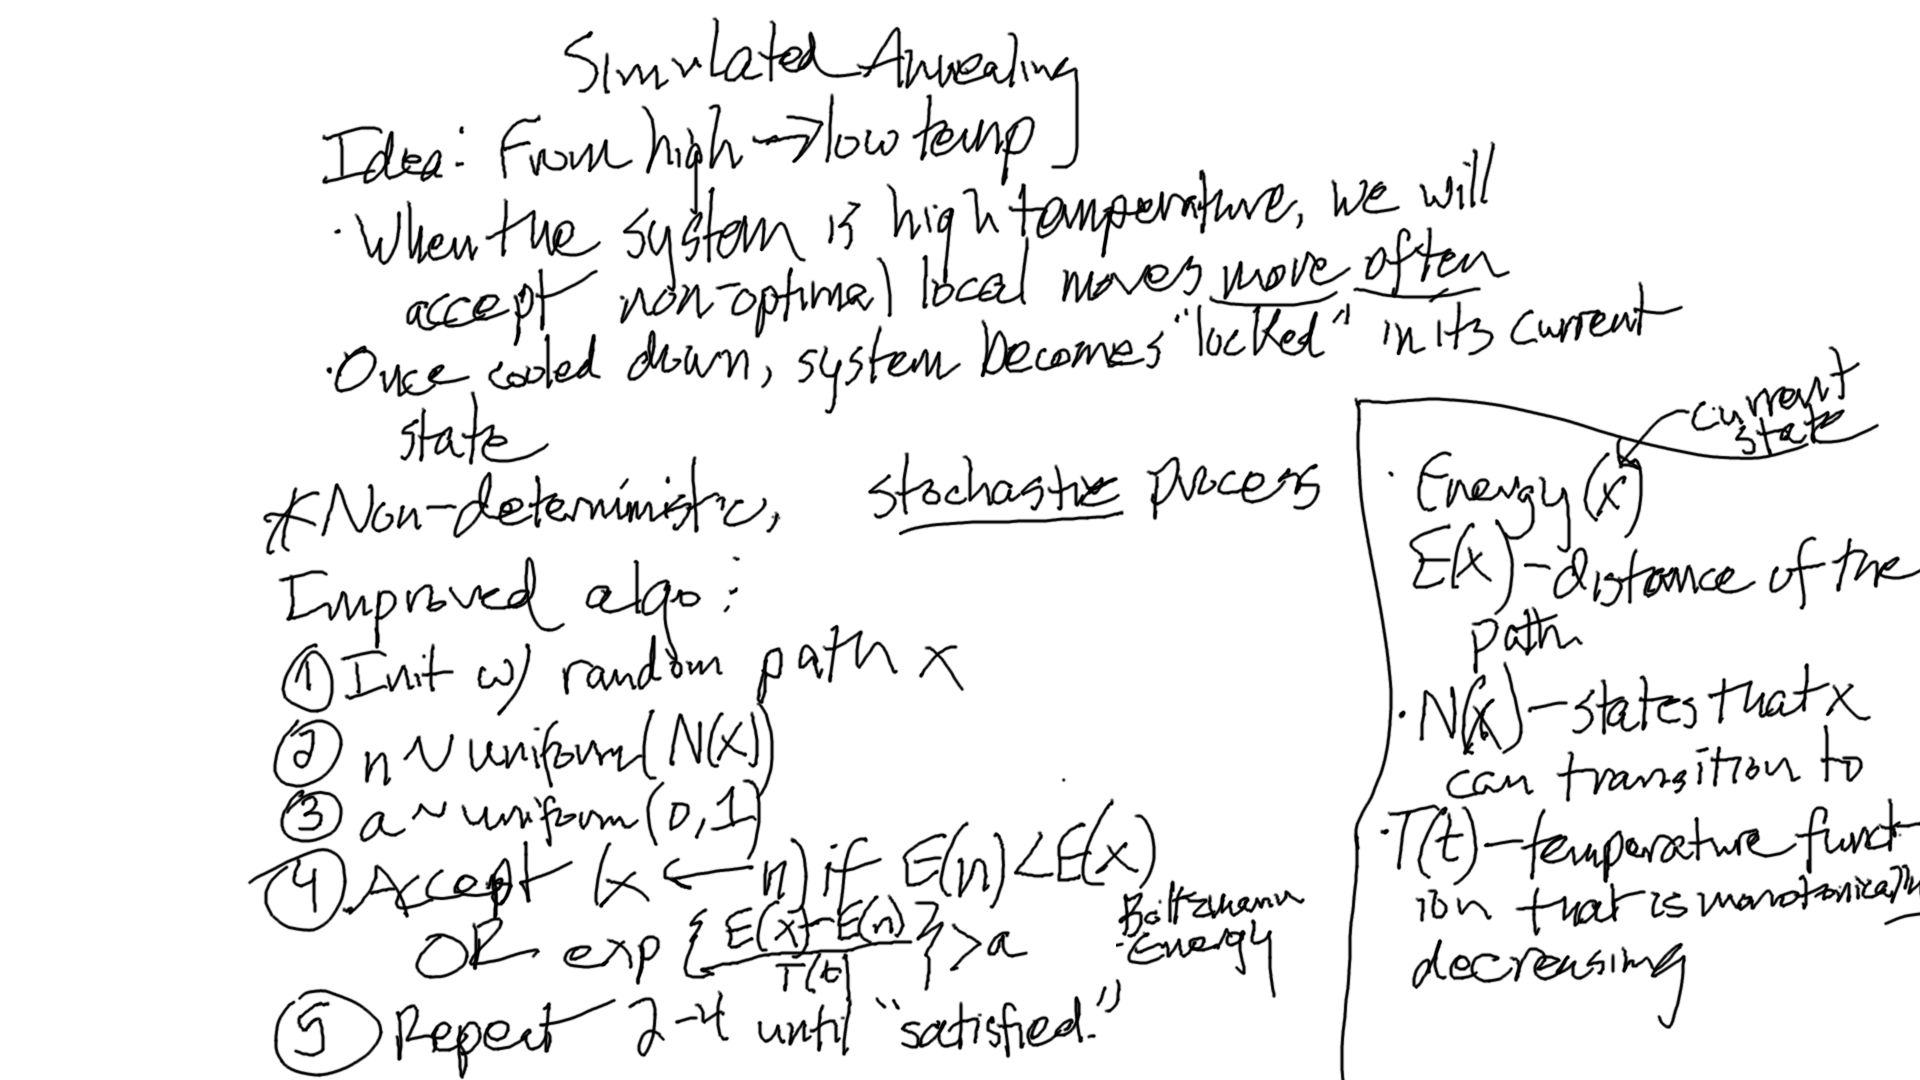 Simulated Annealing
Idea: From high → low temp
· When the system is high temperature, we will
accept non-optimal local moves more often
· Once cooled down, system becomes "locked" in its current
state
* Non-deterministic, stochastic process
Improved algo:
① Init w/ random path x
② n ~ uniform(N(x))
③ a ~ uniform(0,1)
④ Accept (x ← n) if E(n) < E(x)
OR exp { E(x)-E(n) / T(t) } > a
Boltzmann
Energy
⑤ Repeat 2-4 until "satisfied."
current
state
· Energy(x)
E(x) - distance of the
path
· N(x) - states that x
can transition to
· T(t) - temperature funct-
ion that is monotonically
decreasing